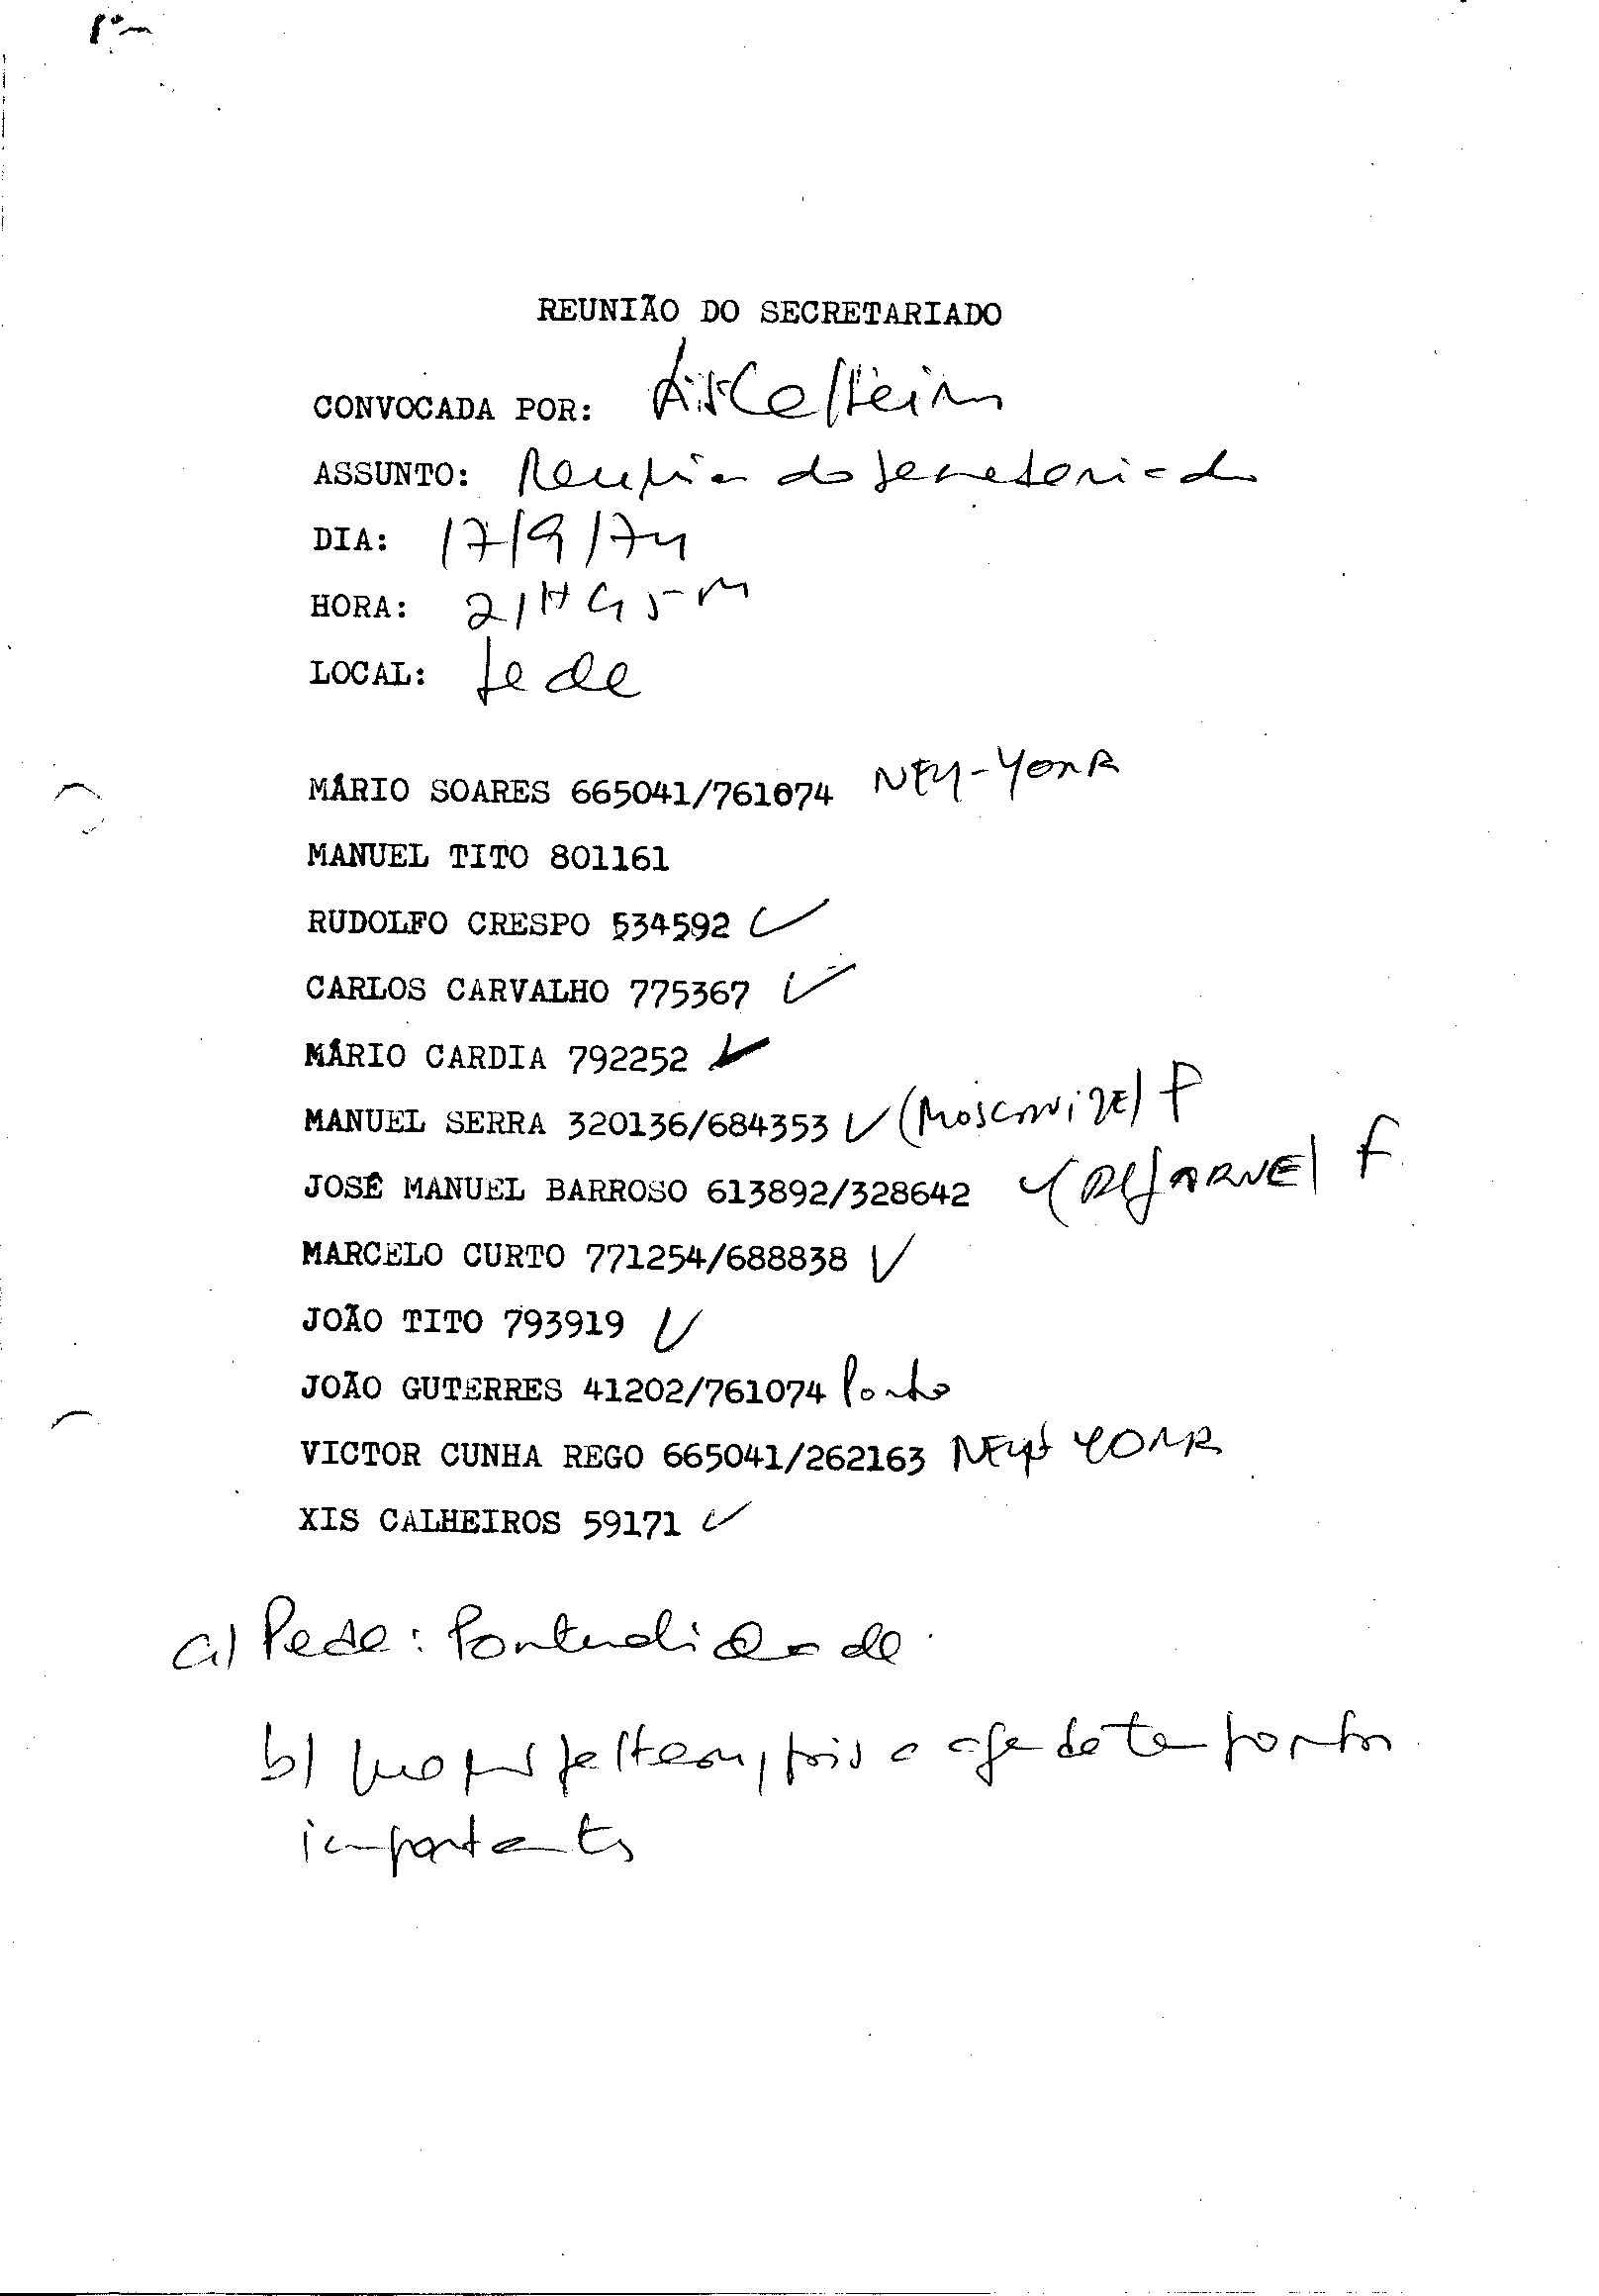 REUNIÃO DO SECRETARIADO
CONVOCADA POR:
ASSUNTO: Reunião do Secretariado
DIA: 17/9/74
HORA: 21H45M
LOCAL: Sede
MÁRIO SOARES 665041/761074 NEW-YORK
MANUEL TITO 801161
RUDOLFO CRESPO 534592 ✓
CARLOS CARVALHO 775367 ✓
MÁRIO CARDIA 792252 ✓
MANUEL SERRA 320136/684353 ✓
JOSÉ MANUEL BARROSO 613892/328642 ✓
MARCELO CURTO 771254/688838 ✓
JOÃO TITO 793919 ✓
JOÃO GUTERRES 41202/761074 Porto
VICTOR CUNHA REGO 665041/262163 NEW YORK
XIS CALHEIROS 59171 ✓
a) Pede: Pontualidade
b) pois a agenda tem pontos
importantes